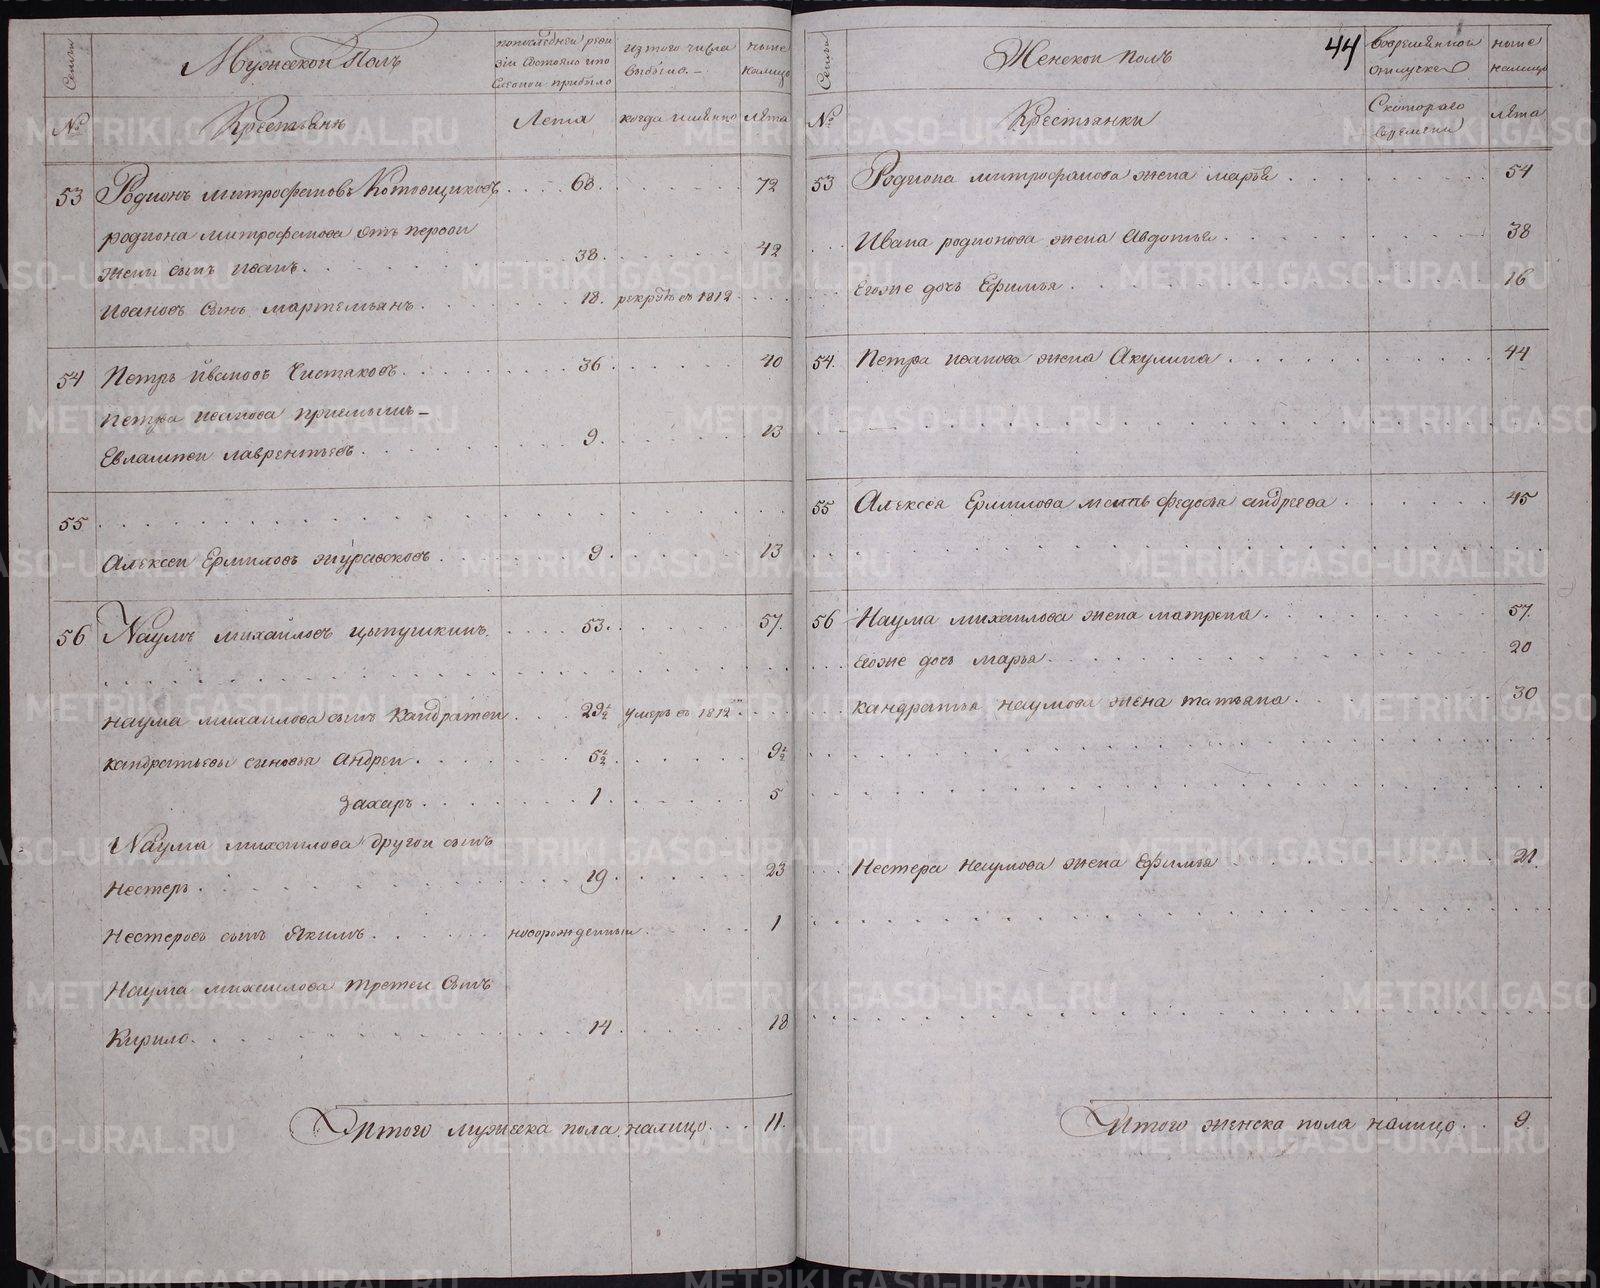 Семьи
Мужескои Полъ
попоследнеи реви
зіи состояло ипо
слеонои прибыло
изтого числа
выбыло. —
ныне
налицо
№
Крестьянѣ
Лета
когда имянно
лѣта
53 Родионъ митрофановъ Котовщиковъ . . . 68. . . . . . 72
родиона митрофанова отъ первои
жены сынъ иванъ. . . . . . . 38. . . . . . 42
Ивановъ сынъ мартемьянъ. . . . . 18. рекрутъ въ 1812 . . .
54 Петръ Ивановъ Чистяковъ. . . . . 36. . . . . . 40
Петра иванова приемышъ —
Евлампеи лаврентьевъ. . . . . 9. . . . . . 13
55 . . . . . . . . . . . . . . . .
Алексеи Ермиловъ журавковъ. . . . . 9. . . . . . 13
56 Наумъ михаиловъ цыпушкинъ. . . . . 53. . . . . . 57.
. . . . . . . . . . . . . . . .
наума михаилова сынъ Кандратеи. . . 29½ умеръ въ 1812го. . . .
кандратьевы сыновья Андреи. . . . . 5½ . . . . . 9½
Захаръ. . . . . 1. . . . . . 5
Наума михаилова другои сынъ
Нестеръ. . . . . . . . 19. . . . . . 23
Нестеровъ сынъ Якимъ. . . . . новорожденныи. . . . . 1
Наума михаилова третеи сынъ
Кирило. . . . . . . . 14. . . . . . 18
Итого мужеска пола налицо. . . 11.
Семьи
Женскои полъ
44
вовременнои
отлучке
ныне
налицо
№
Крестьянки
Скотораго
времени
лѣта
53 Родиона митрофанова жена марья. . . . . . . . 54
Ивана родионова жена Авдотья. . . . . . . . 38
Егоже дочь Ефимья. . . . . . . . 16
54. Петра иванова жена Акулина. . . . . . . . 44
. . . . . . . . . . . . . . . .
55 Алексея Ермилова мать федосья андреева. . . . . . 45
. . . . . . . . . . . . . . . .
56 Наума михаилова жена матрена. . . . . . . . 57.
Егоже дочь марья. . . . . . . . 20
кандратья наумова жена татьяна. . . . . . . . 30
. . . . . . . . . . . . . . . .
. . . . . . . . . . . . . . . .
Нестера Наумова жена Ефимья. . . . . . . . 21.
. . . . . . . . . . . . . . . .
. . . . . . . . . . . . . . . .
Итого женска пола налицо. . . 9.
METRIKI.GASO-URAL.RU